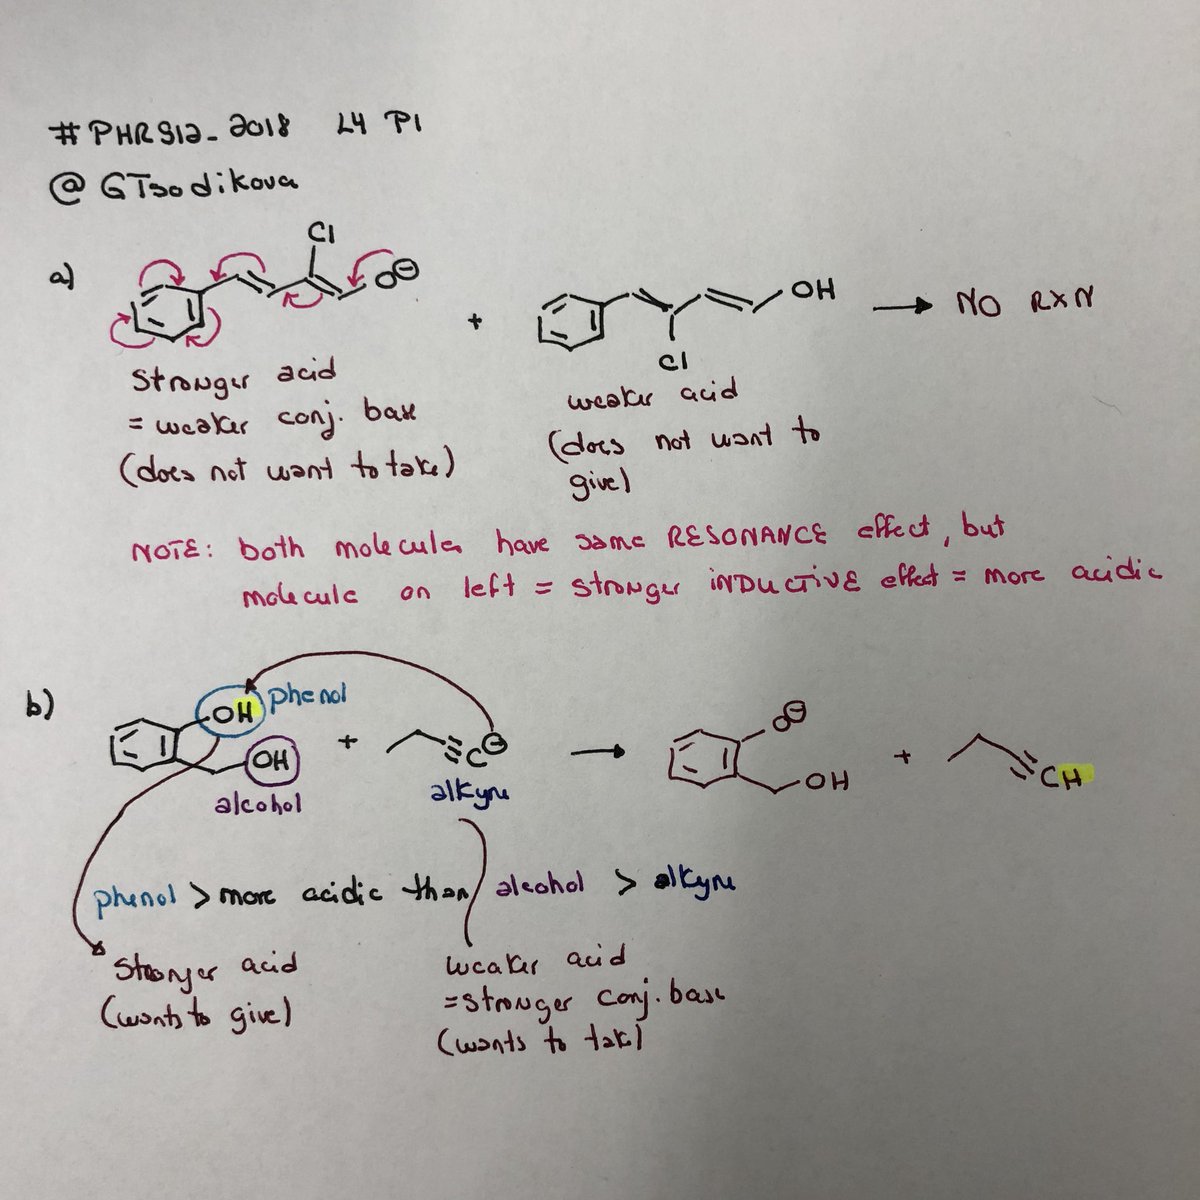 #PHR912_2018 L4 P1
@GTsodikova
a)
Cl
O⊖
+
OH
Cl
→ NO RXN
Stronger acid
= weaker conj. base
(does not want to take)
weaker acid
(does not want to
give)
NOTE: both molecules have same RESONANCE effect, but
molecule on left = stronger INDUCTIVE effect = more acidic
b)
OH phenol
OH
alcohol
+
C⊖
alkyne
→
O⊖
OH
+
CH
phenol > more acidic than / alcohol > alkyne
Stronger acid
(wants to give)
weaker acid
=stronger conj. base
(wants to take)